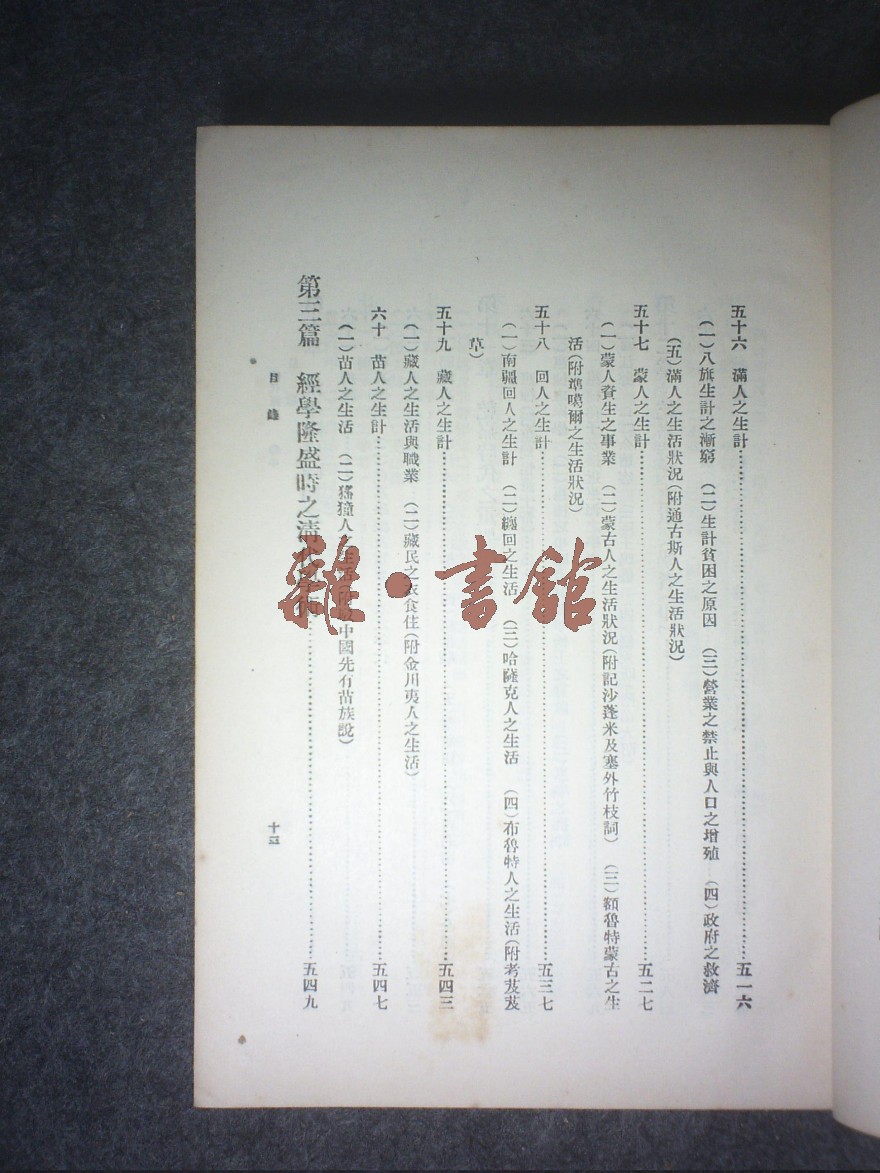 五十六　滿人之生計…………五一六
（一）八旗生計之漸窮　（二）生計貧困之原因　（三）營業之禁止與人口之增殖　（四）政府之救濟
（五）滿人之生活狀況（附通古斯人之生活狀況）
五十七　蒙人之生計…………五二七
（一）蒙人資生之事業　（二）蒙古人之生活狀況（附記沙蓬米及塞外竹枝詞）　（三）額魯特蒙古之生
活（附準噶爾之生活狀況）
五十八　回人之生計…………五三七
（一）南疆回人之生計　（二）纏回之生活　（三）哈薩克人之生活　（四）布魯特人之生活（附考芨芨
草）
五十九　藏人之生計…………五四三
（一）藏人之生活與職業　（二）藏民之衣食住（附金川夷人之生活）
六十　苗人之生計…………五四七
（一）苗人之生活　（二）猺獞人之　中國先有苗族說）
第三篇　經學隆盛時之清　…………五四九
目錄
十三
雜·書館